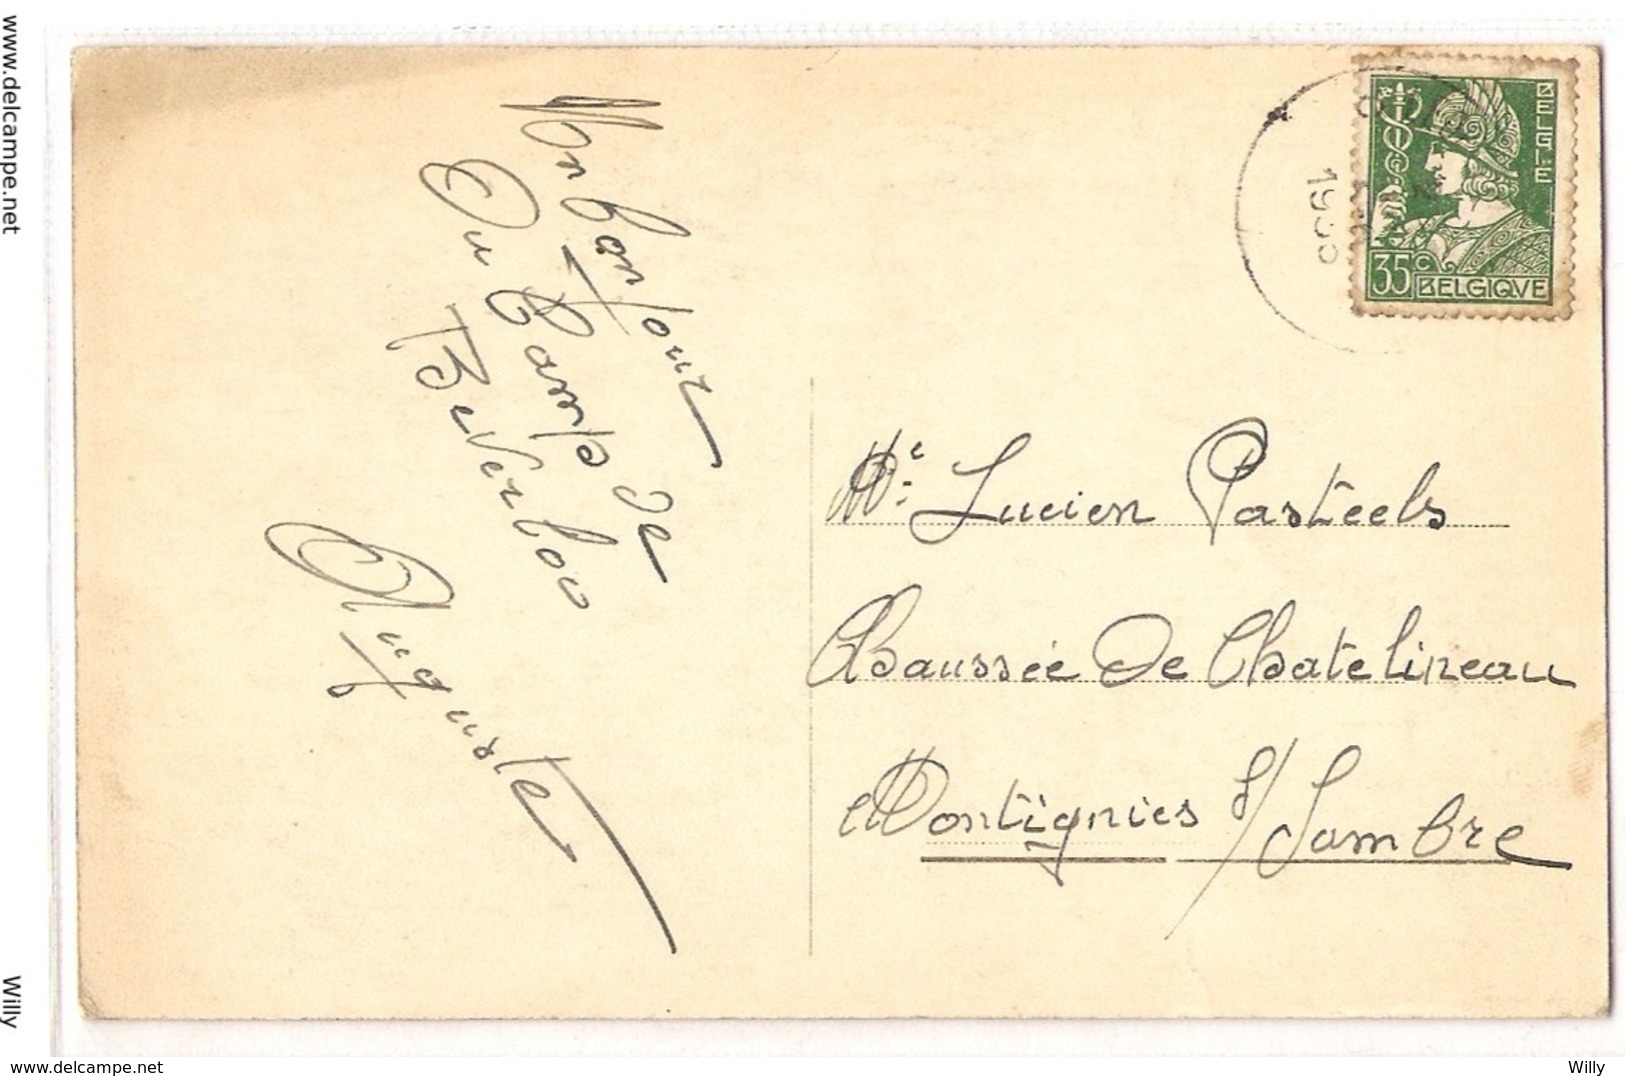 www.delcampe.net
Un bonjour
Du Camp de
Beverloo
Auguste
BELGIE
35 c BELGIQVE
Mr. Lucien Pasteels
Chaussée De Chatelineau
Montignies s/Sambre
Willy
www.delcampe.net
Willy